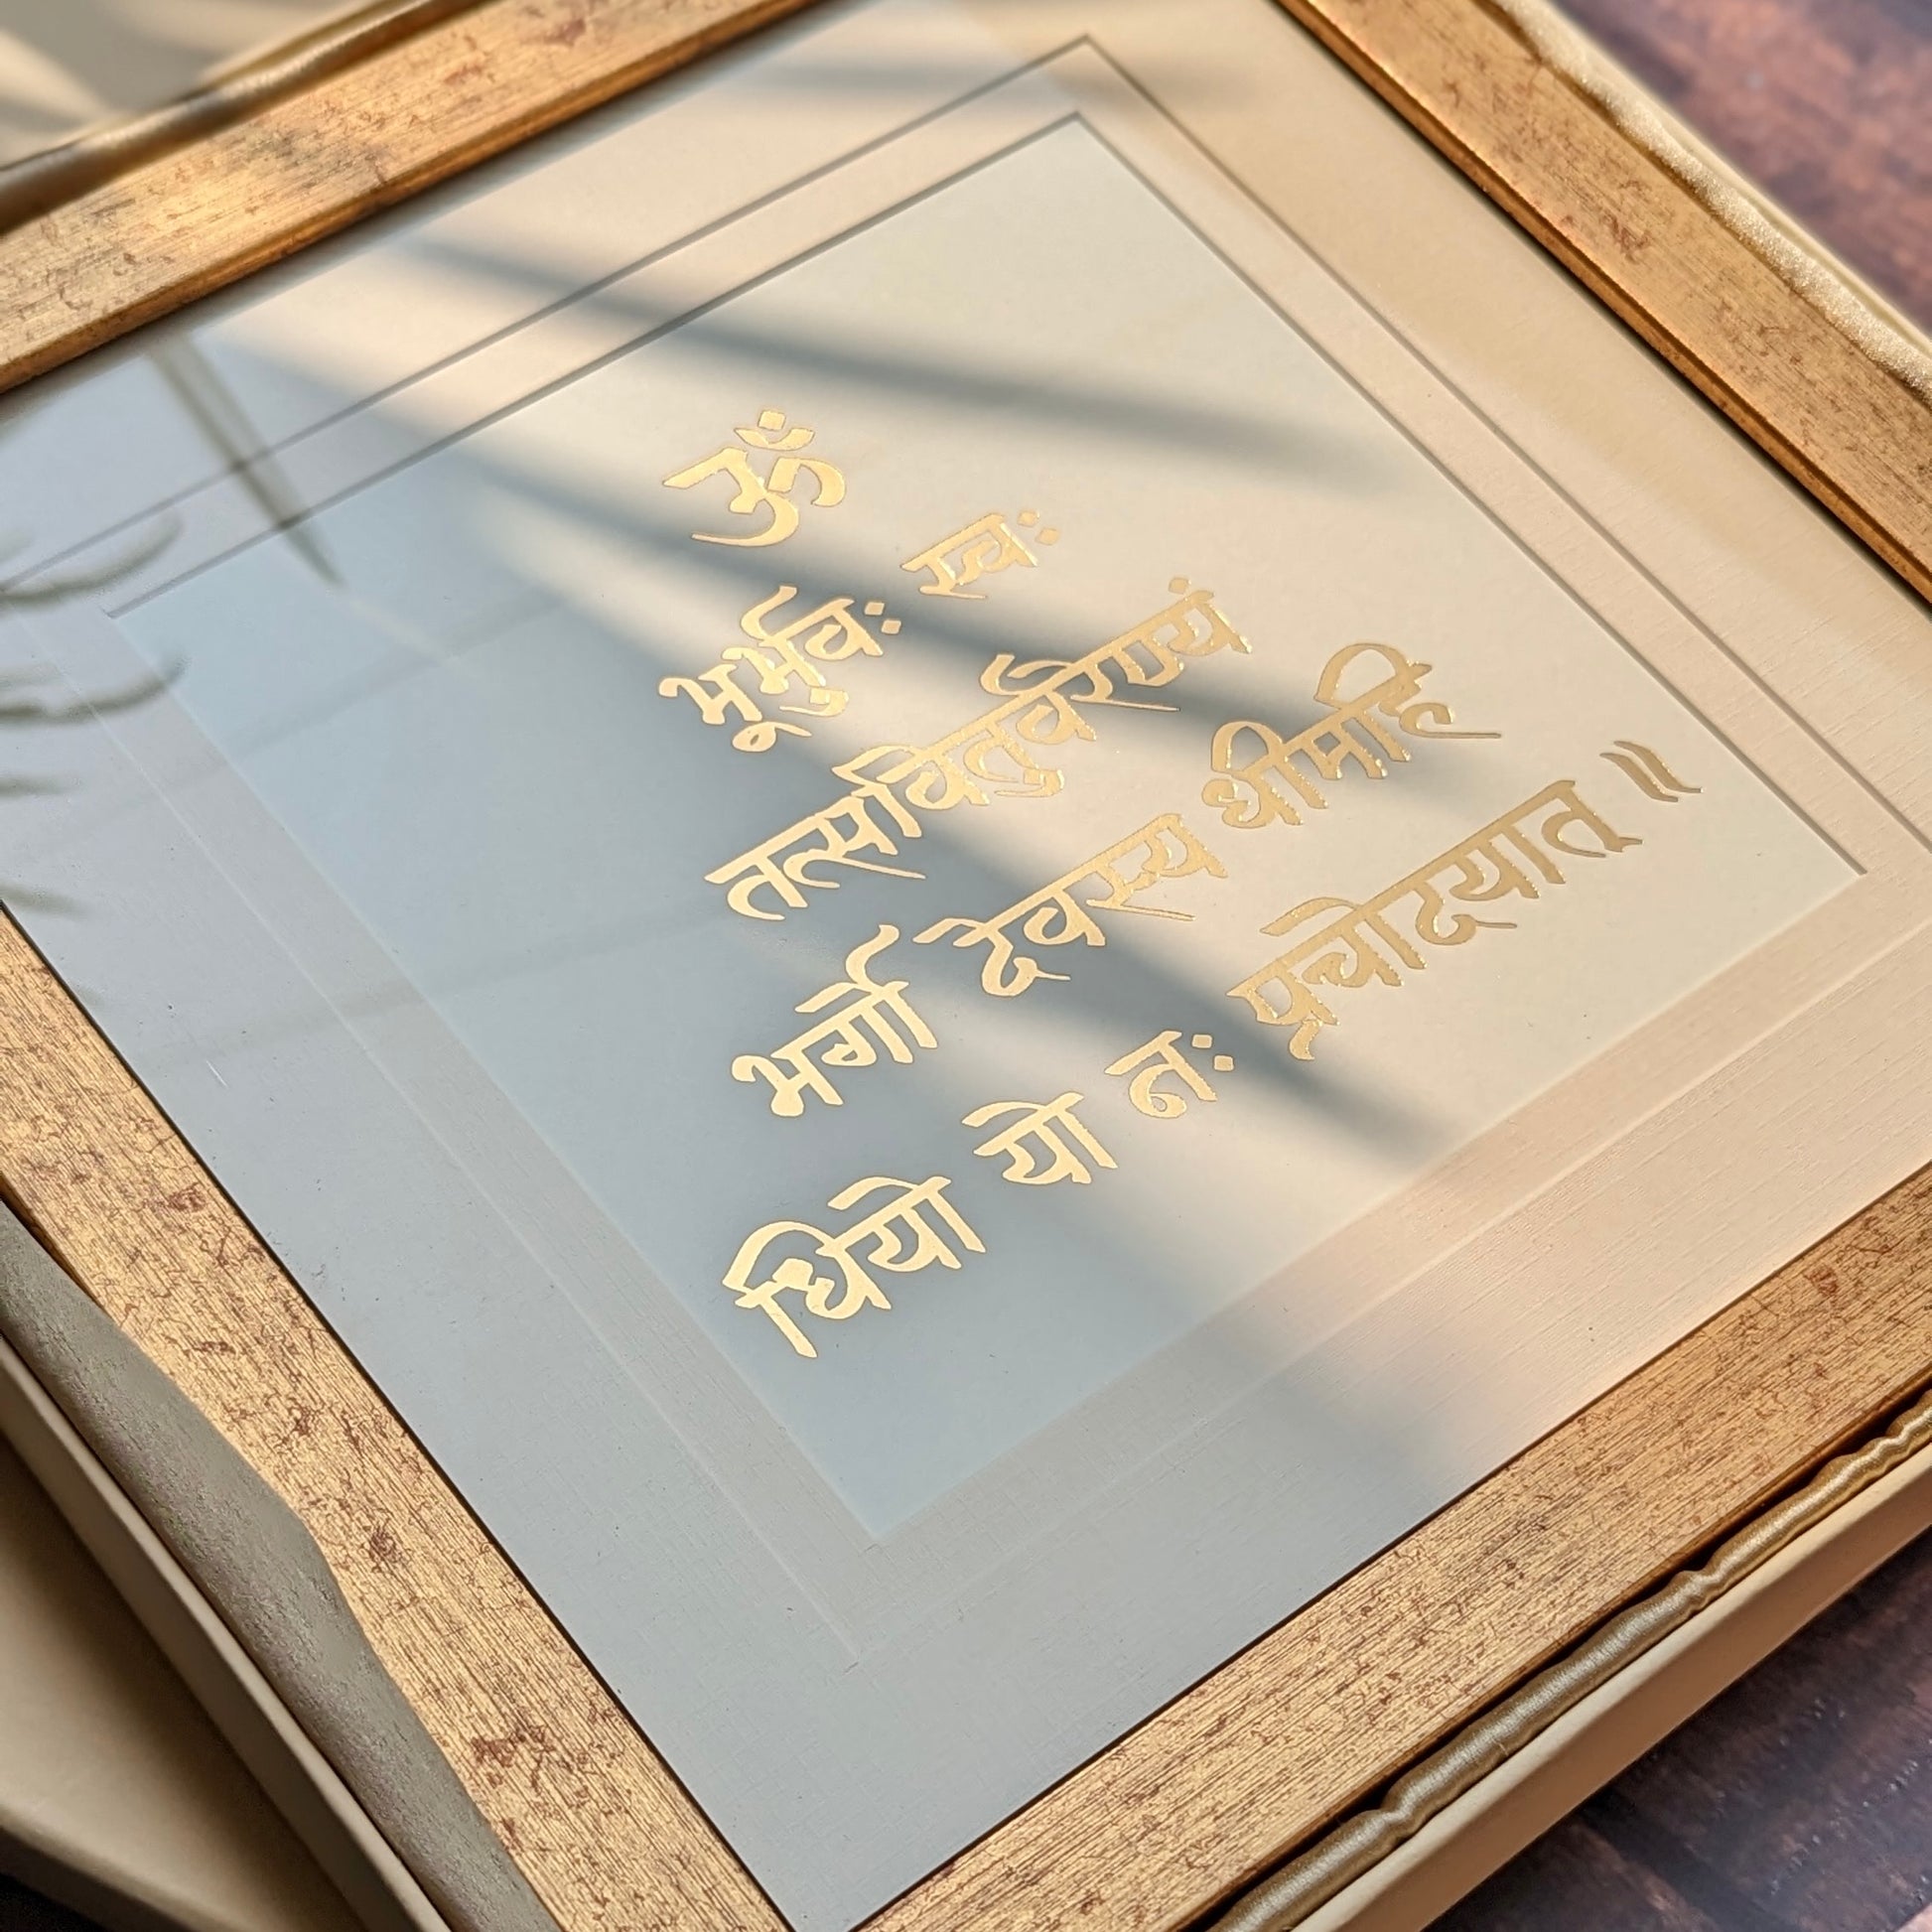 ॐ
भूर्भुवः स्वः
तत्सवितुर्वरेण्यं
भर्गो देवस्य धीमहि
धियो यो नः प्रचोदयात् ॥